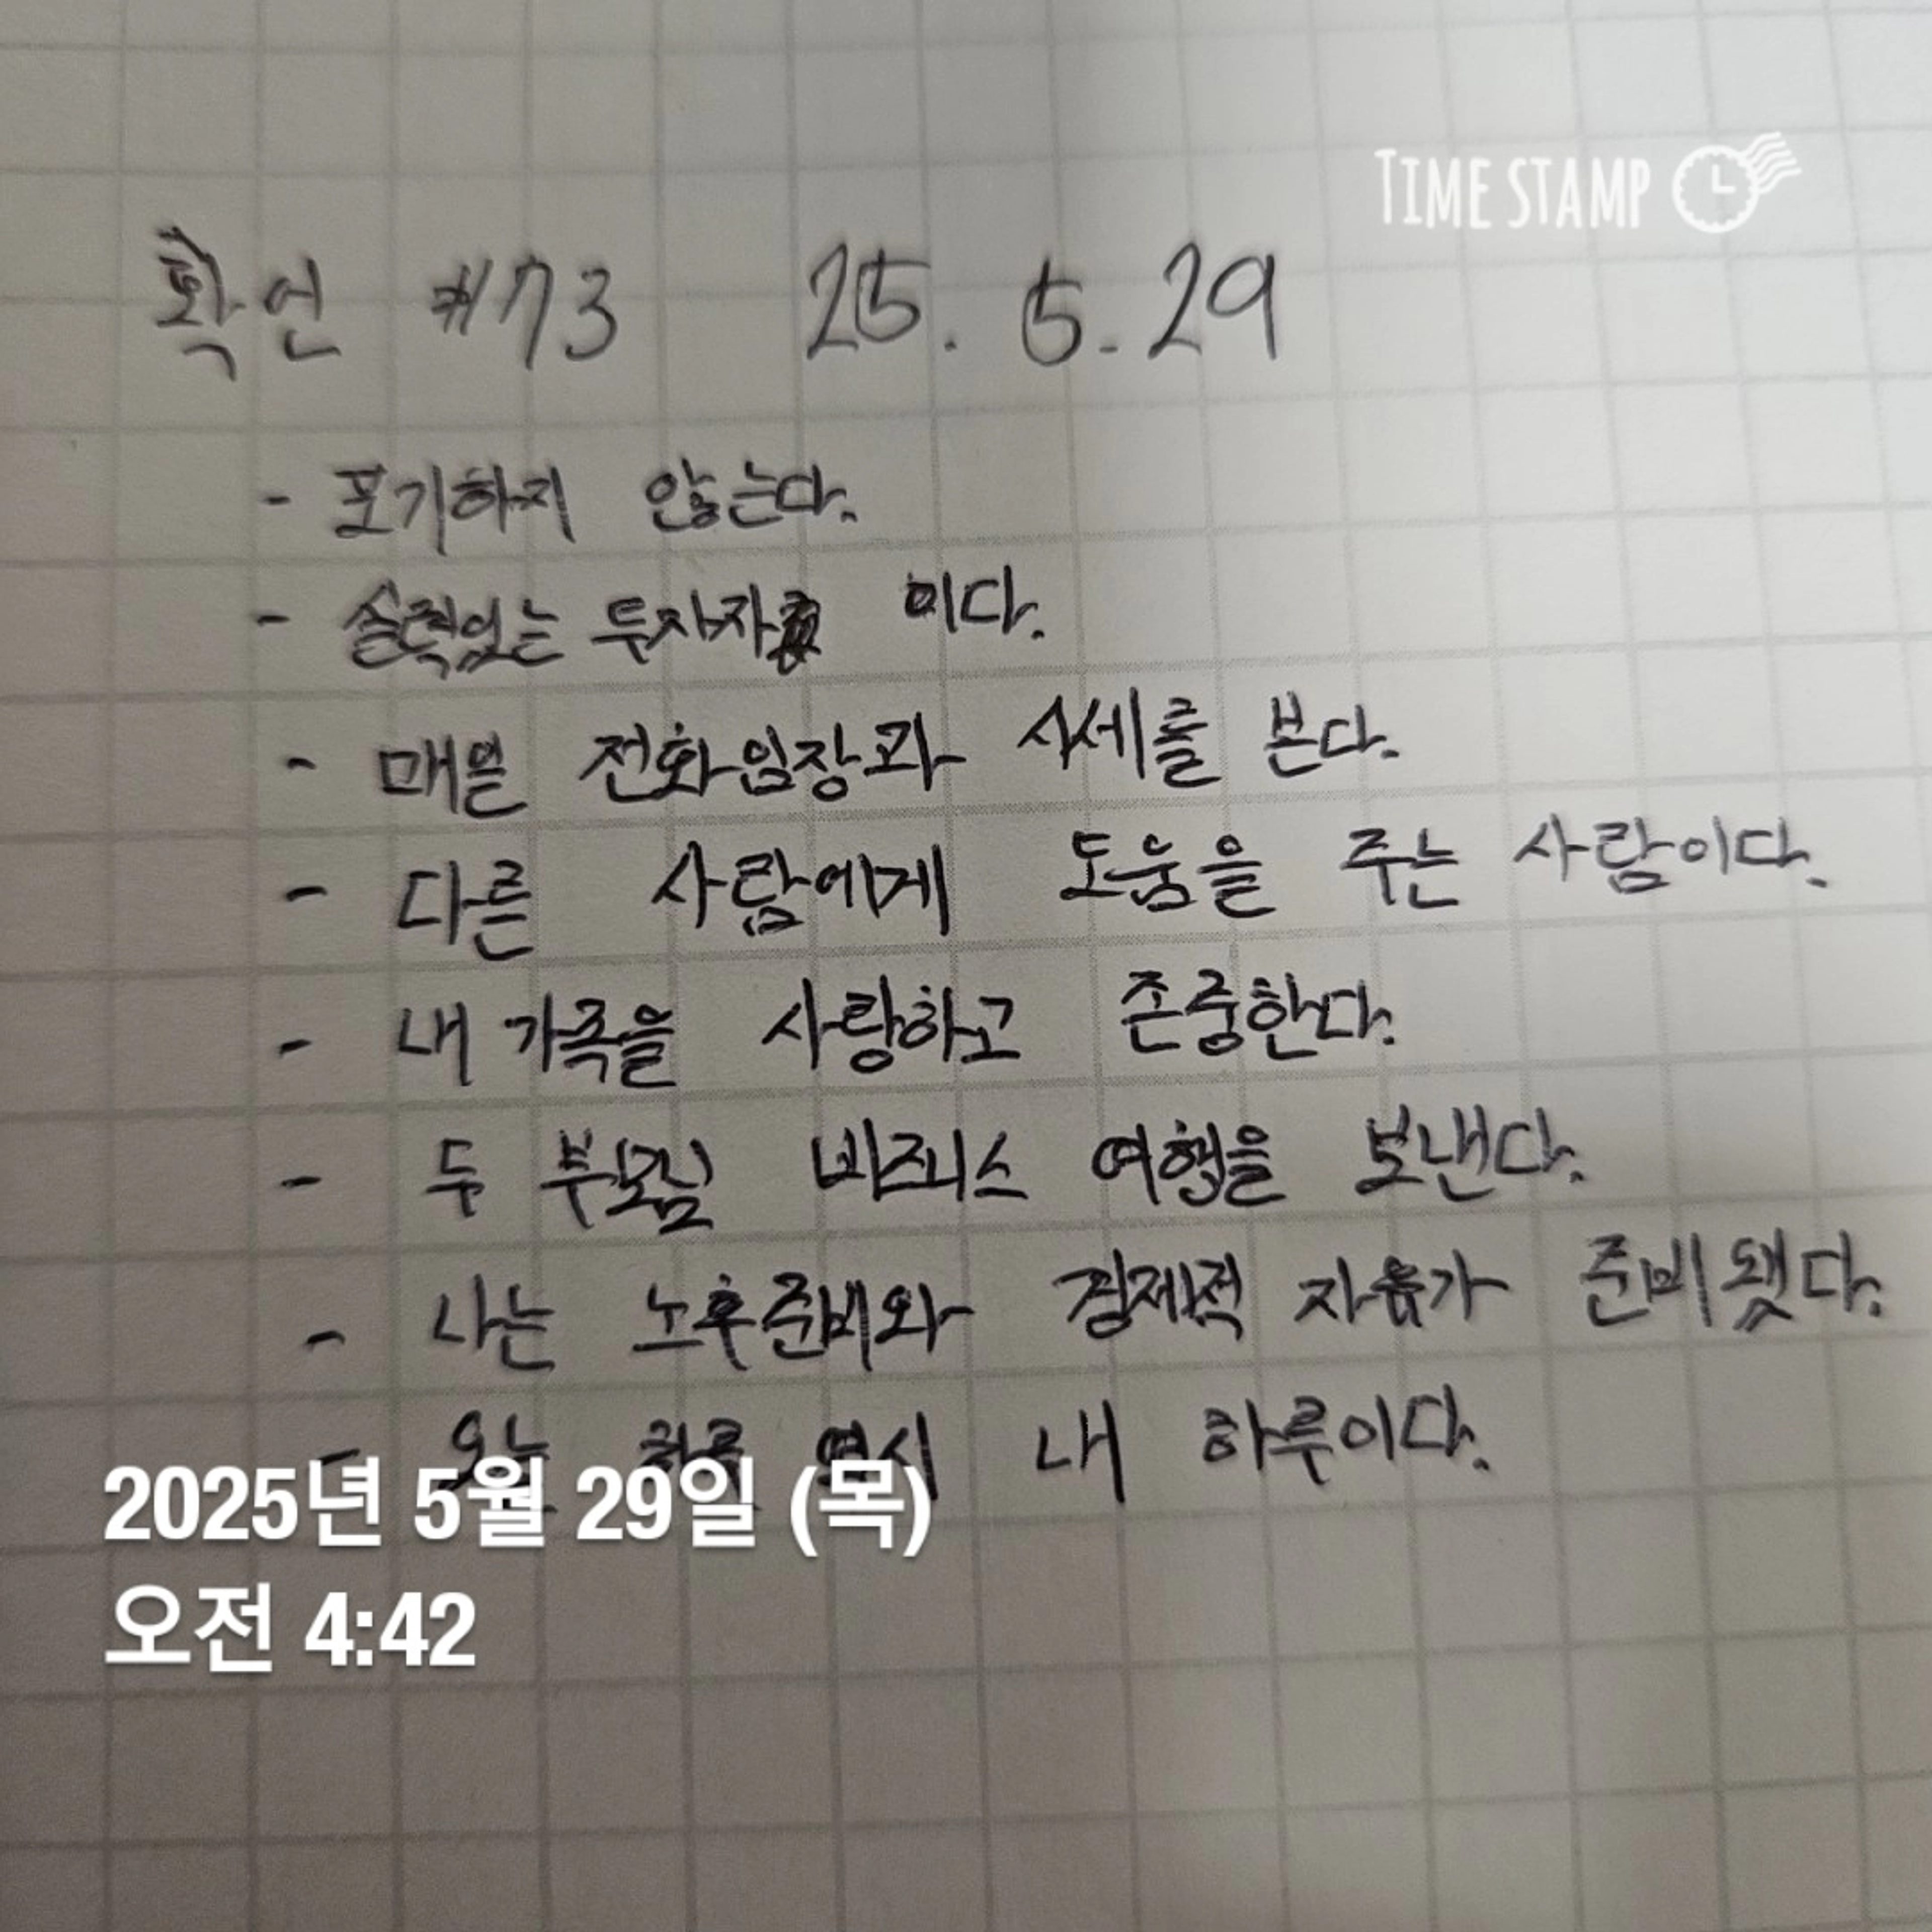 TIME STAMP
확언 #73 25. 5. 29
- 포기하지 않는다.
- 실력있는 투자자 이다.
- 매일 전화임장과 시세를 본다.
- 다른 사람에게 도움을 주는 사람이다.
- 내 가족을 사랑하고 존중한다.
- 두 부모님 비즈니스 여행을 보낸다.
- 나는 노후준비와 경제적 자유가 준비됐다.
- 오늘 하루 역시 내 하루이다.
2025년 5월 29일 (목)
오전 4:42